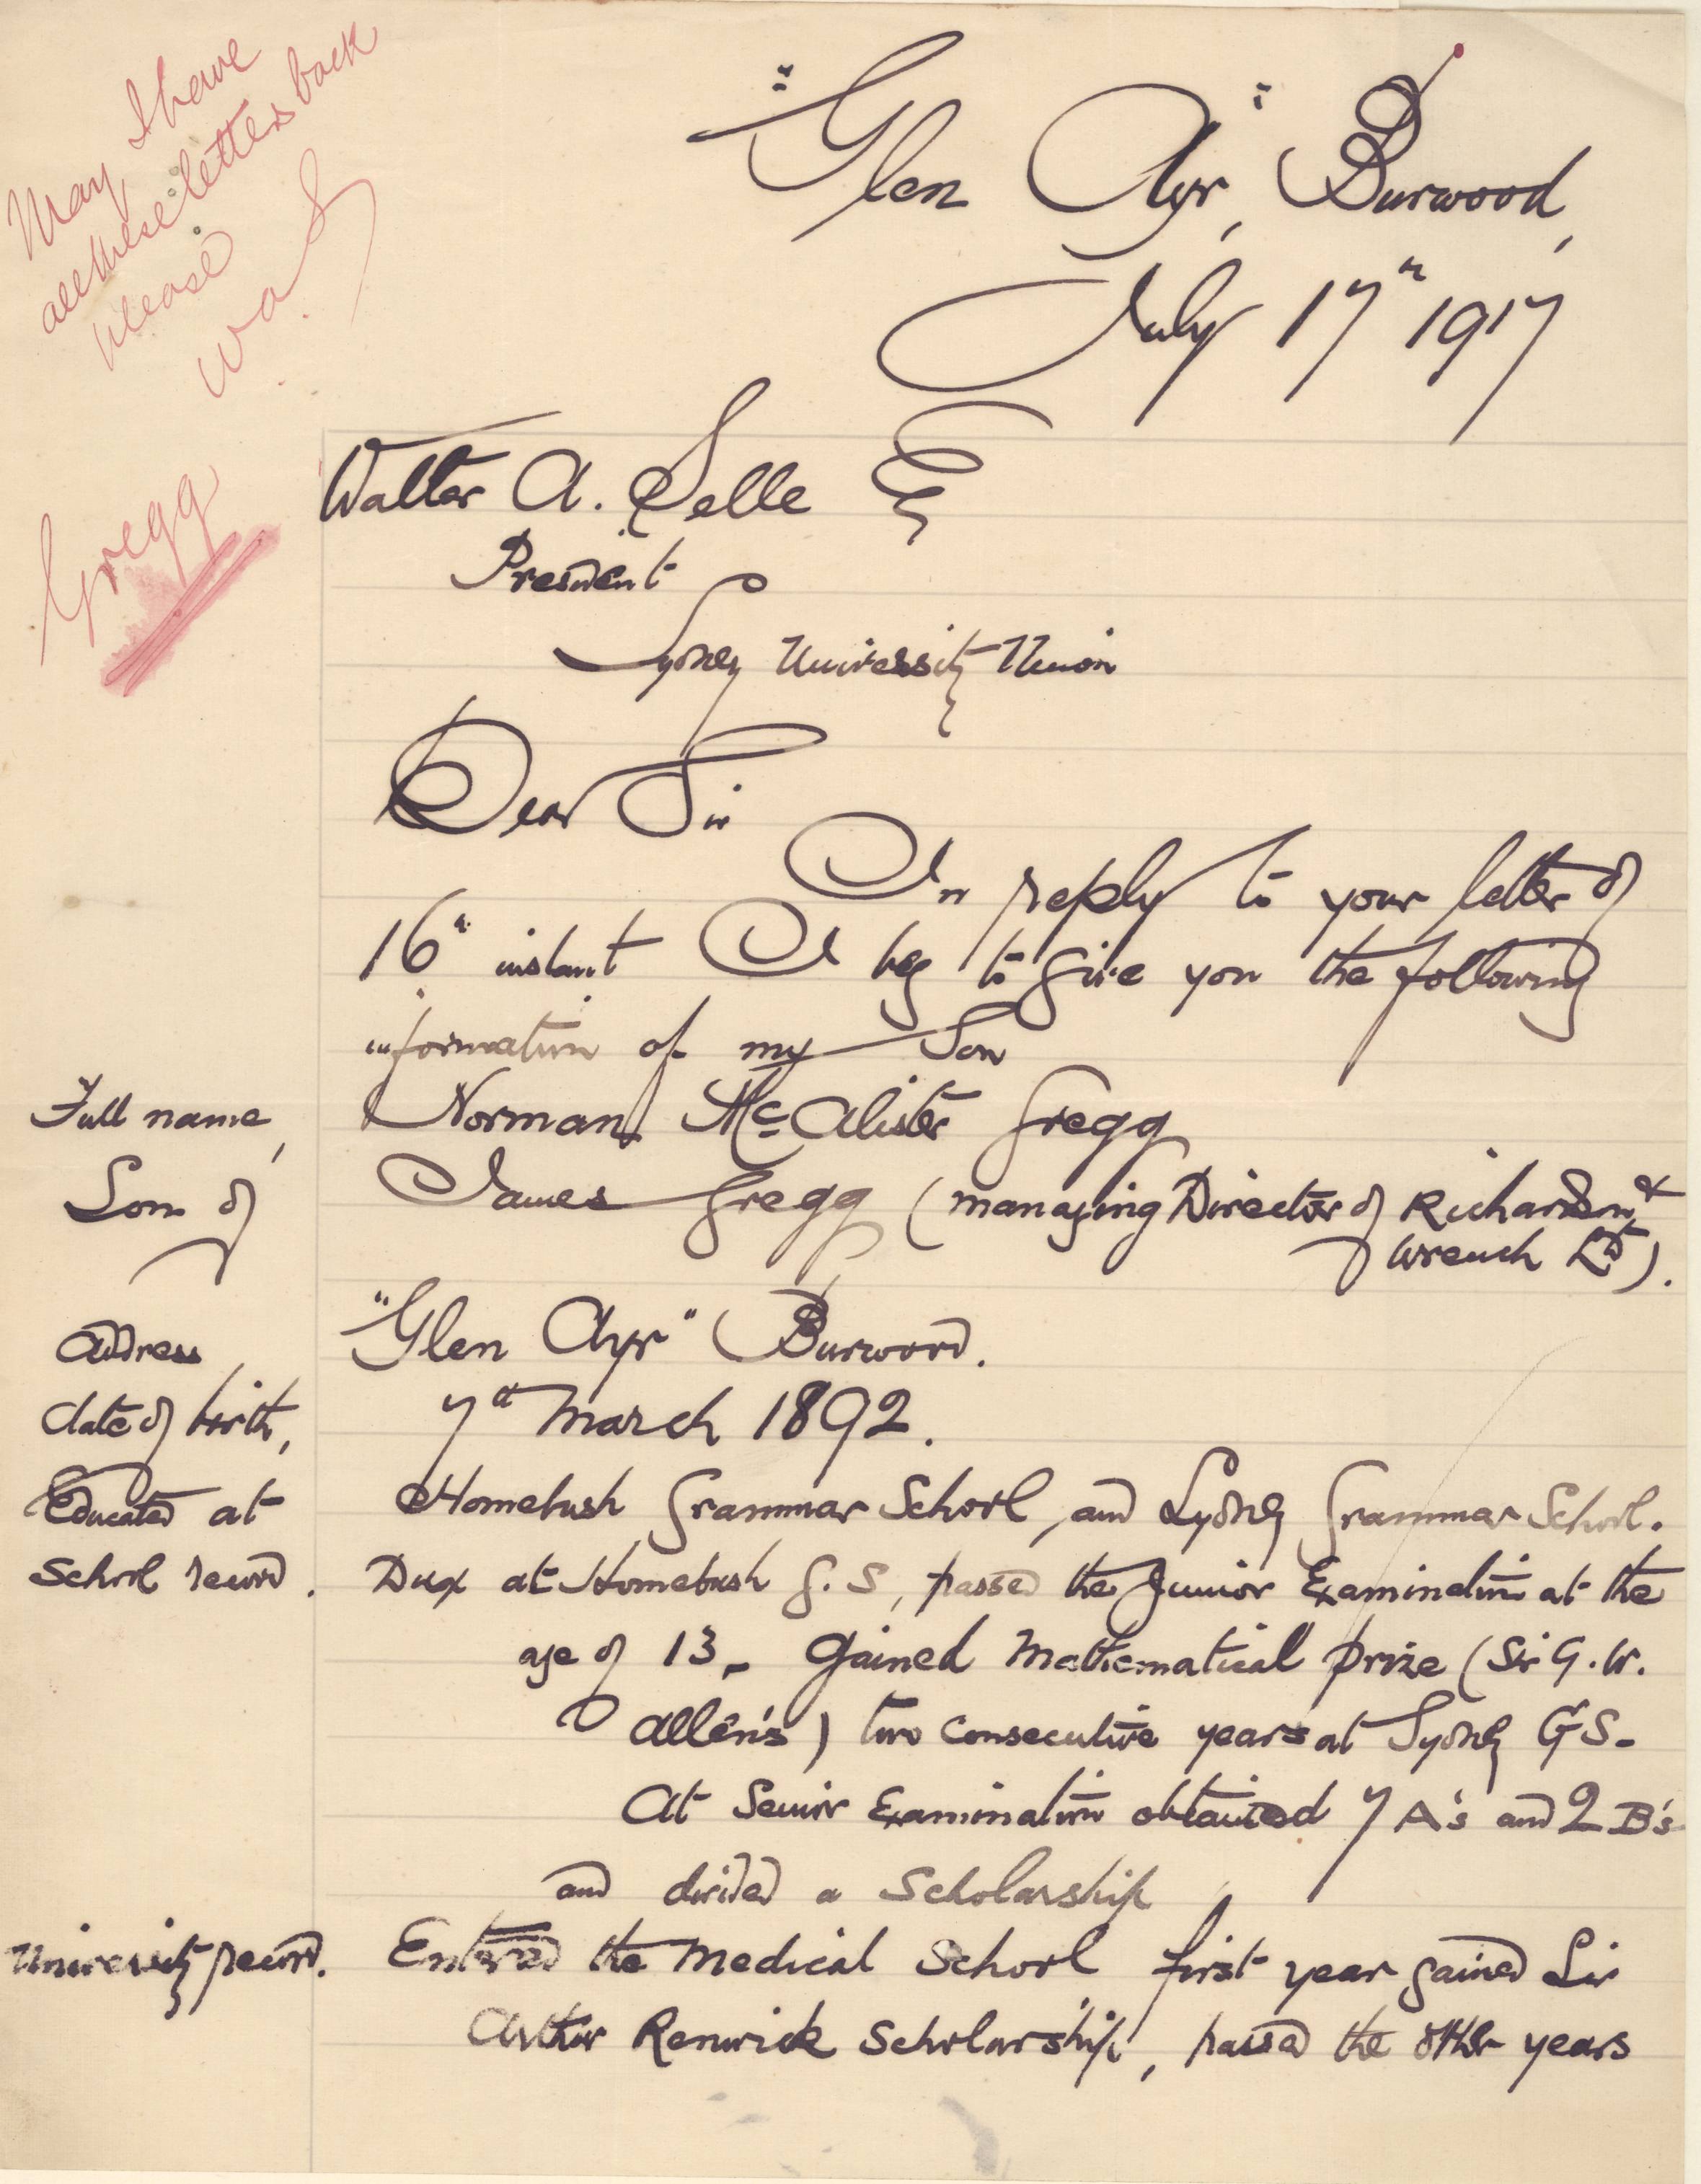 May I have
all these letters back
please
WAS
Gregg
"Glen Ayr", Burwood,
July 17th 1917
Walter A. Selle Esq
President
Sydney University Union
Dear Sir
In reply to your letter of
16th instant I beg to give you the following
information of my Son
Full name, Norman McAlister Gregg
Son of James Gregg (Managing Director of Richardson &
Wrench Ltd).
Address "Glen Ayr" Burwood.
date of birth, 7th March 1892.
Educated at Homebush Grammar School, and Sydney Grammar School.
School record. Dux at Homebush G.S, passed the Junior Examination at the
age of 13. Gained Mathematical prize (Sir G. W.
Allen's) two consecutive years at Sydney GS.
At Senior Examination obtained 7 A's and 2 B's
and divided a Scholarship
University record. Entered the Medical School first year gained Sir
Arthur Renwick Scholarship, passed the other years